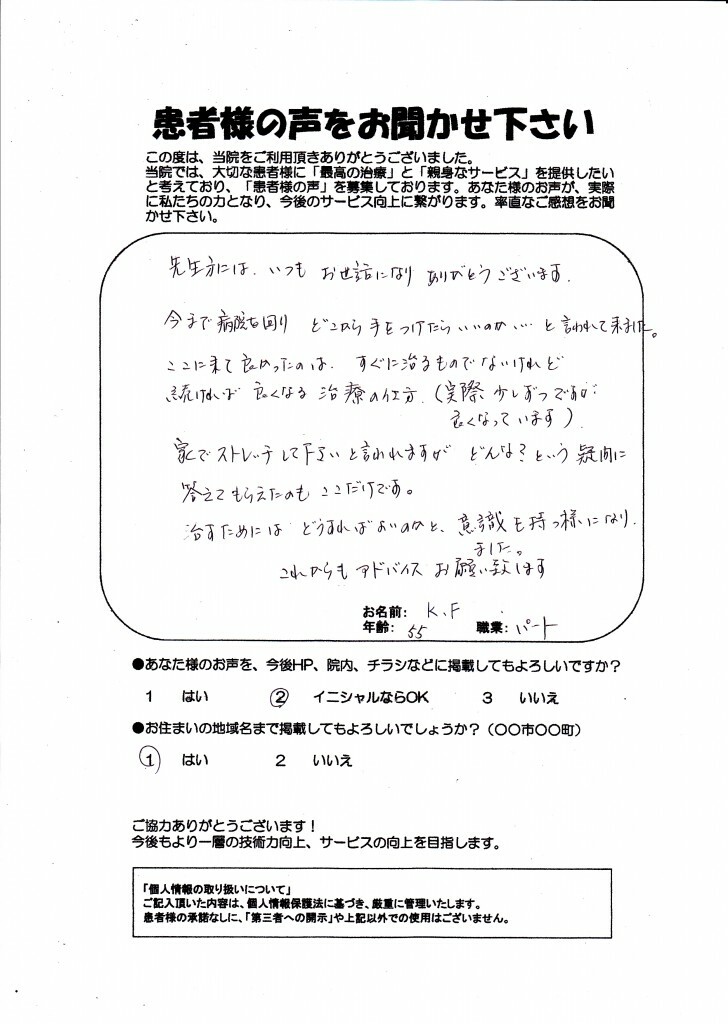 患者様の声をお聞かせ下さい
この度は、当院をご利用頂きありがとうございました。
当院では、大切な患者様に「最高の治療」と「親身なサービス」を提供したい
と考えており、「患者様の声」を募集しております。あなた様のお声が、実際
に私たちの力となり、今後のサービス向上に繋がります。率直なご感想をお聞
かせ下さい。
先生方には、いつも お世話になり ありがとうございます。
今まで病院を回り どこから手をつけたらいいのか… と言われて来ました。
ここに来て良かったのは、すぐに治るものでないけれど
続ければ 良くなる 治療の仕方、(実際 少しずつですが
良くなっています)
家でストレッチして下さいと言われますが どんな?という疑問に
答えてもらえたのもここだけです。
治すためには どうすればよいのかと、意識も持つ様になり
ました。
これからもアドバイス お願い致します
お名前: K.F
年齢: 55 職業: パート
●あなた様のお声を、今後HP、院内、チラシなどに掲載してもよろしいですか?
1 はい ② イニシャルならOK 3 いいえ
●お住まいの地域名まで掲載してもよろしいでしょうか?(〇〇市〇〇町)
① はい 2 いいえ
ご協力ありがとうございます!
今後もより一層の技術力向上、サービスの向上を目指します。
「個人情報の取り扱いについて」
ご記入頂いた内容は、個人情報保護法に基づき、厳重に管理いたします。
患者様の承諾なしに、「第三者への開示」や上記以外での使用はございません。